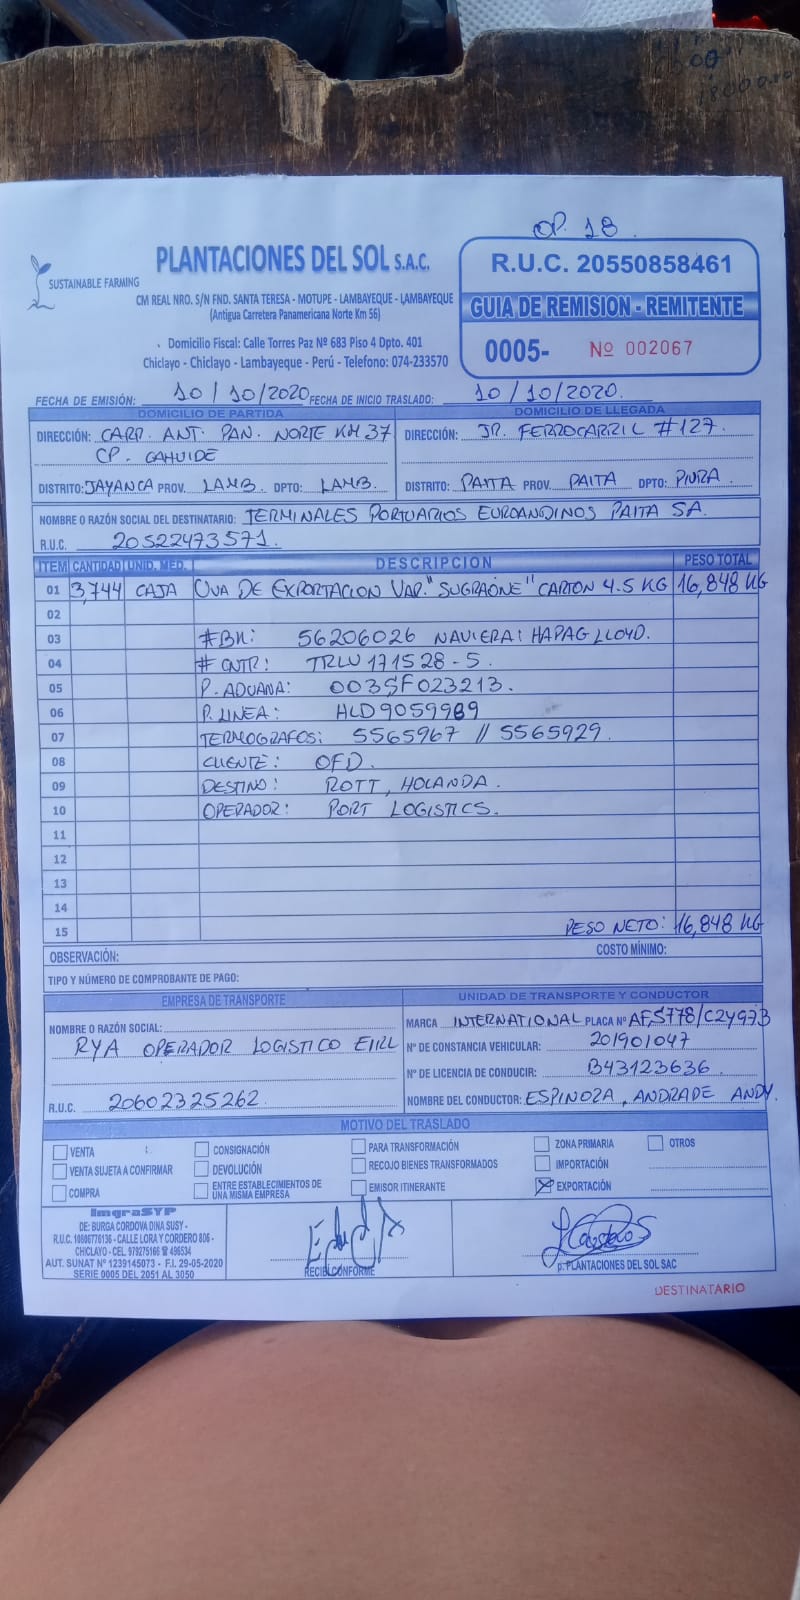 OP. 18.
SUSTAINABLE FARMING
PLANTACIONES DEL SOL S.A.C.
CM REAL NRO. S/N FND. SANTA TERESA - MOTUPE - LAMBAYEQUE - LAMBAYEQUE
(Antigua Carretera Panamericana Norte Km 56)
Domicilio Fiscal: Calle Torres Paz Nº 683 Piso 4 Dpto. 401
Chiclayo - Chiclayo - Lambayeque - Perú - Telefono: 074-233570
R.U.C. 20550858461
GUIA DE REMISION - REMITENTE
0005- Nº 002067
FECHA DE EMISIÓN: 10/10/2020 FECHA DE INICIO TRASLADO: 10/10/2020.
DOMICILIO DE PARTIDA
DIRECCIÓN: CARR. ANT. PAN. NORTE KM 37
CP. CAHUIDE
DISTRITO: JAYANCA PROV. LAMB. DPTO: LAMB.
DOMICILIO DE LLEGADA
DIRECCIÓN: JR. FERROCARRIL #127.
DISTRITO: PAITA PROV. PAITA DPTO: PIURA.
NOMBRE O RAZÓN SOCIAL DEL DESTINATARIO: TERMINALES PORTUARIOS EUROANDINOS PAITA SA.
R.U.C. 20522473571.
ITEM CANTIDAD UNID. MED. DESCRIPCION PESO TOTAL
01 3,744 CAJA UVA DE EXPORTACION VAR. "SUGRAONE" CARTON 4.5 KG 16,848 KG
02
03 #BK: 56206026 NAVIERA: HAPAG LLOYD.
04 # CNTR: TRLU 171528-5.
05 P. ADUANA: 003SF023213.
06 P. LINEA: HLD9059989
07 TERMOGRAFOS: 5565967 // 5565929.
08 CLIENTE: OFD.
09 DESTINO: ROTT, HOLANDA.
10 OPERADOR: PORT LOGISTICS.
11
12
13
14
15 PESO NETO: 16,848 KG
OBSERVACIÓN: COSTO MÍNIMO:
TIPO Y NÚMERO DE COMPROBANTE DE PAGO:
EMPRESA DE TRANSPORTE
NOMBRE O RAZÓN SOCIAL:
RYA OPERADOR LOGISTICO EIRL
R.U.C. 20602325262
UNIDAD DE TRANSPORTE Y CONDUCTOR
MARCA INTERNATIONAL PLACA Nº AFS778/C2Y973
Nº DE CONSTANCIA VEHICULAR: 201901047
Nº DE LICENCIA DE CONDUCIR: B43123636
NOMBRE DEL CONDUCTOR: ESPINOZA, ANDRADE ANDY.
MOTIVO DEL TRASLADO
VENTA CONSIGNACIÓN PARA TRANSFORMACIÓN ZONA PRIMARIA OTROS
VENTA SUJETA A CONFIRMAR DEVOLUCIÓN RECOJO BIENES TRANSFORMADOS IMPORTACIÓN
COMPRA ENTRE ESTABLECIMIENTOS DE UNA MISMA EMPRESA EMISOR ITINERANTE EXPORTACIÓN
ImgraSYP
DE: BURGA CORDOVA DINA SUSY -
R.U.C. 10806776136 - CALLE LORA Y CORDERO 806 -
CHICLAYO - CEL. 979275166 ☎ 496534
AUT. SUNAT Nº 1239145073 - F.I. 29-05-2020
SERIE 0005 DEL 2051 AL 3050
RECIBI CONFORME
p. PLANTACIONES DEL SOL SAC
DESTINATARIO